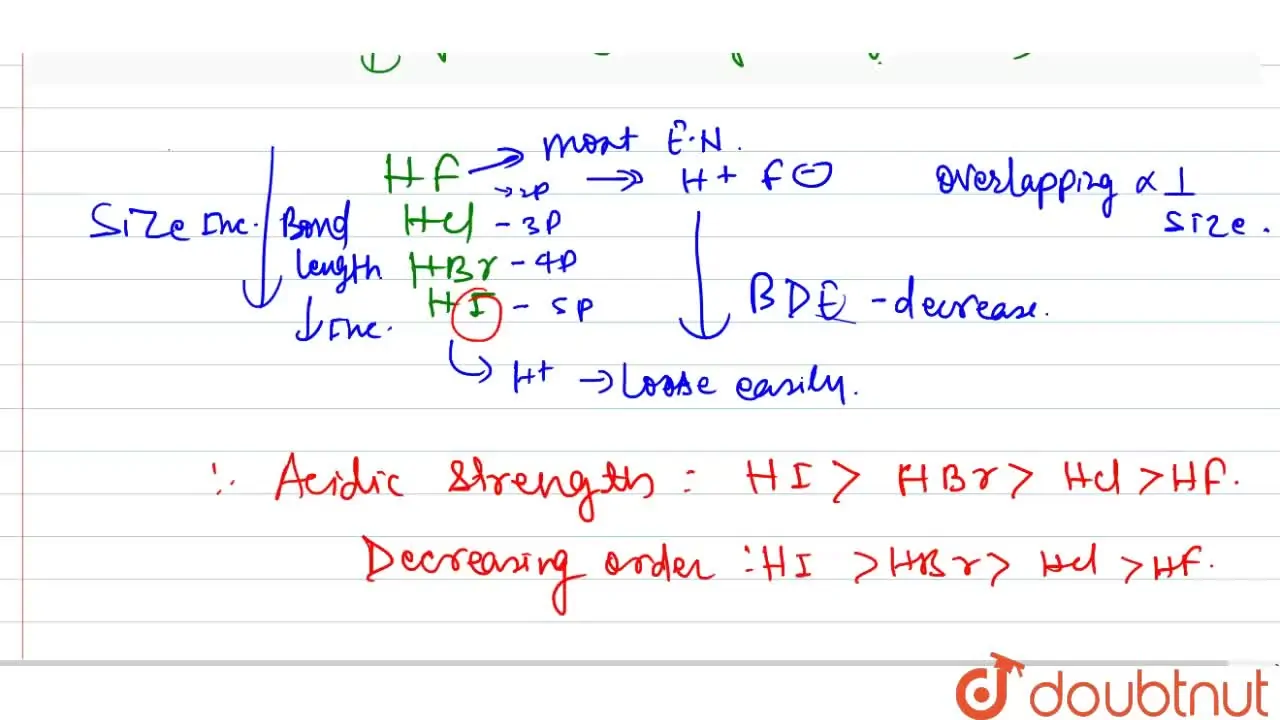 HF → most E.N.
→2P → H+ F⊖ overlapping ∝ 1
Size Inc. Bond HCl - 3P size.
length HBr - 4P
↓ Inc. HI - 5P BDE - decrease.
↳ H+ → Loose easily.
∴ Acidic strength : HI > HBr > HCl > HF.
Decreasing order : HI > HBr > HCl > HF.
doubtnut